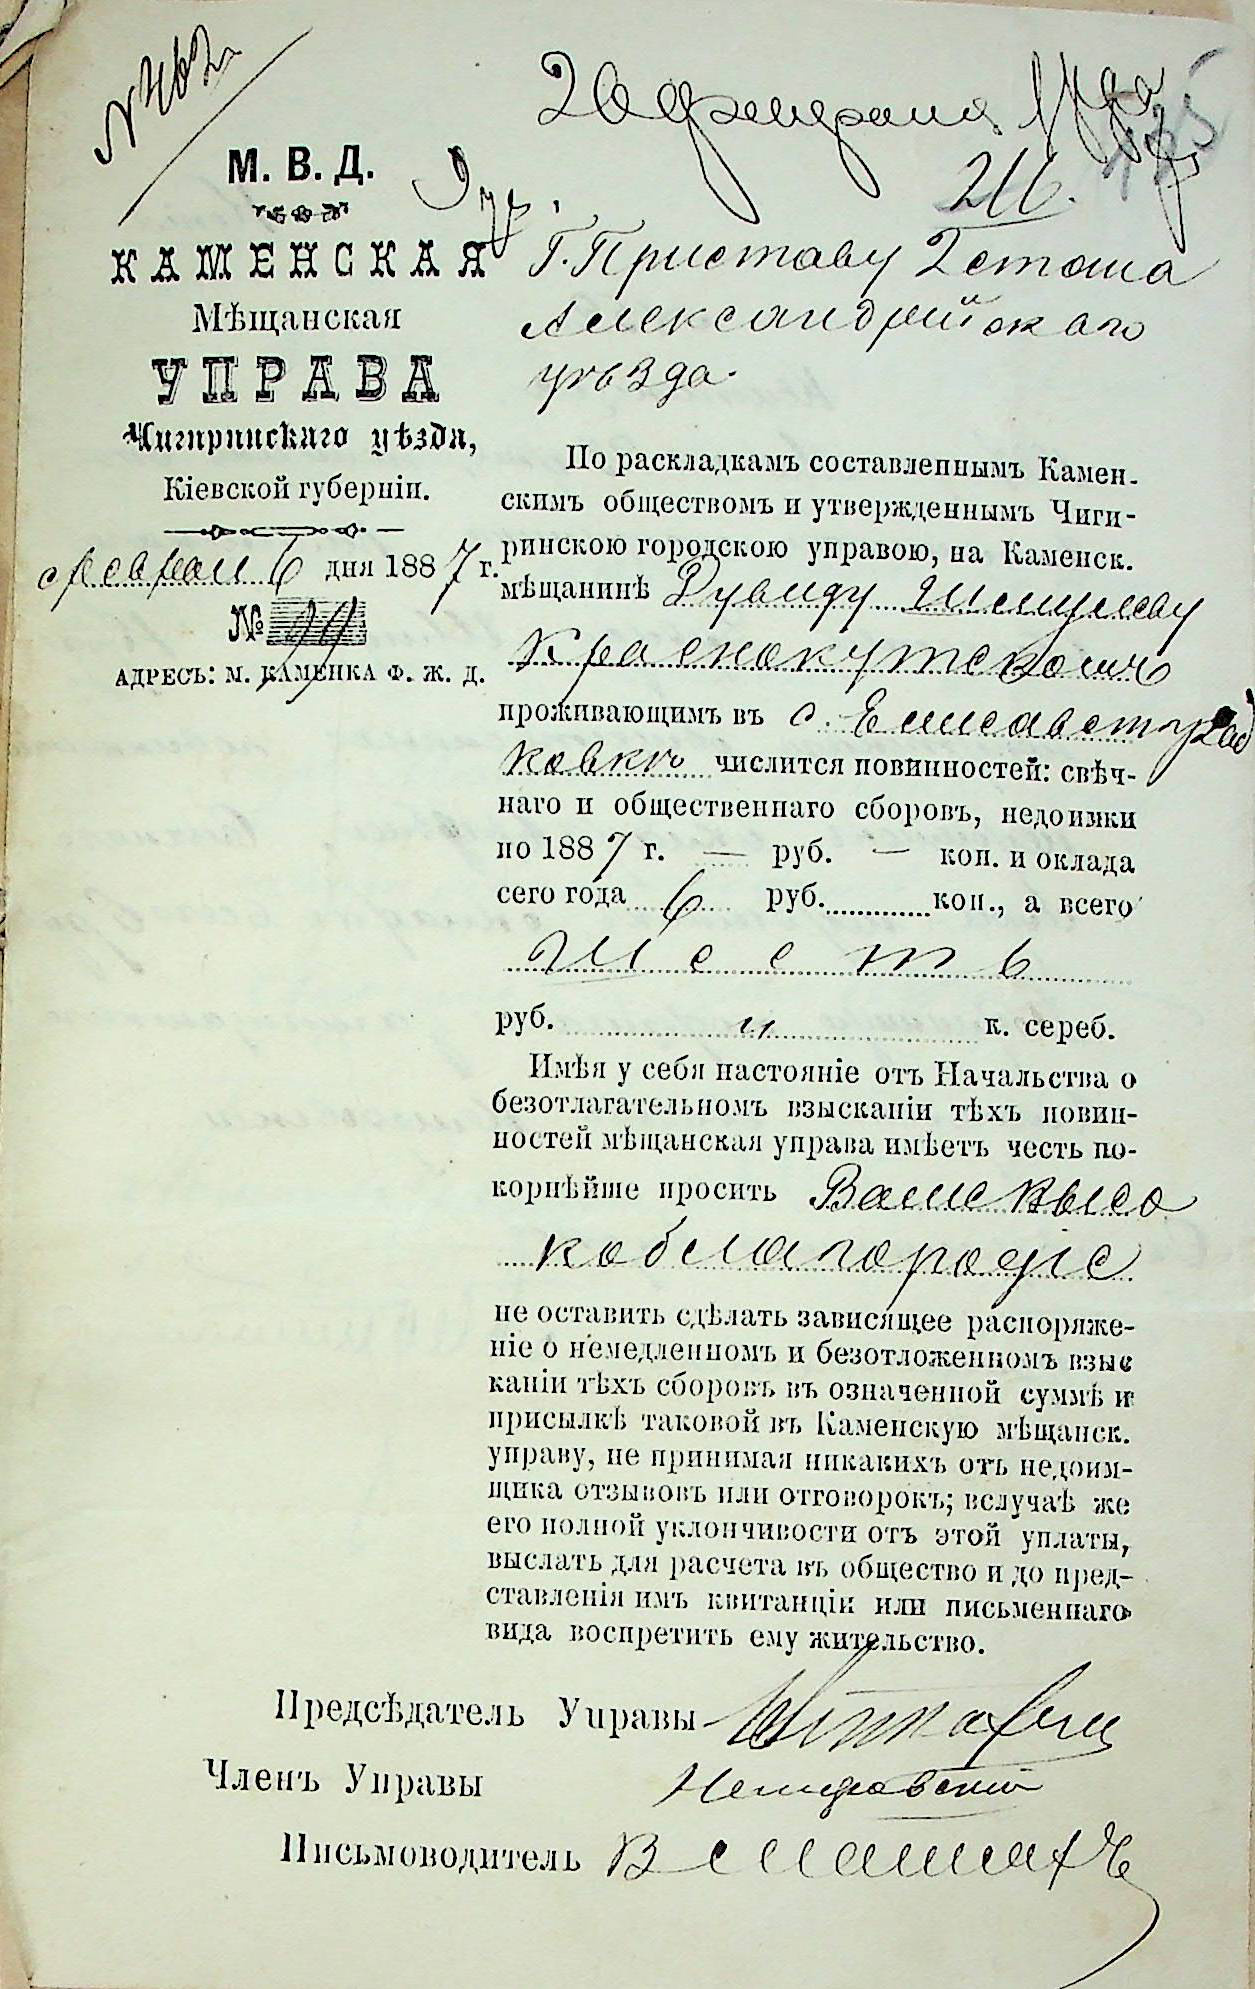 № 462
20 февраля 1887
211.
М. В. Д.
КАМЕНСКАЯ
Мѣщанская
УПРАВА
Чигиринскаго уѣзда,
Кіевской губерніи.
февраля 6 дня 1887 г.
№ 99
АДРЕСЪ: М. КАМЕНКА Ф. Ж. Д.
Г. Приставу 2 стана
Александрійскаго
уѣзда.
По раскладкамъ составленнымъ Камен-
скимъ обществомъ и утвержденнымъ Чиги-
ринскою городскою управою, на Каменск.
мѣщанинѣ Дувиду Шмулеву
Краснокутскомъ
проживающимъ въ с. Елисаветград
ковкѣ числится повинностей: свѣч-
наго и общественнаго сборовъ, недоимки
по 1887 г. — руб. — коп. и оклада
сего года 6 руб. коп., а всего
Шесть
руб. и к. сереб.
Имѣя у себя настояніе отъ Начальства о
безотлагательномъ взысканіи тѣхъ повин-
ностей мѣщанская управа имѣетъ честь по-
корнѣйше просить Ваше Высо
коблагородіе
не оставить сдѣлать зависящее распоряже-
ніе о немедленномъ и безотложенномъ взыс
каніи тѣхъ сборовъ въ означенной суммѣ и
присылкѣ таковой въ Каменскую мѣщанск.
управу, не принимая никакихъ отъ недоим-
щика отзывовъ или отговорокъ; вслучаѣ же
его полной уклончивости отъ этой уплаты,
выслать для расчета въ общество и до пред-
ставленія имъ квитанціи или письменнаго
вида воспретить ему жительство.
Предсѣдатель Управы
Членъ Управы
Письмоводитель